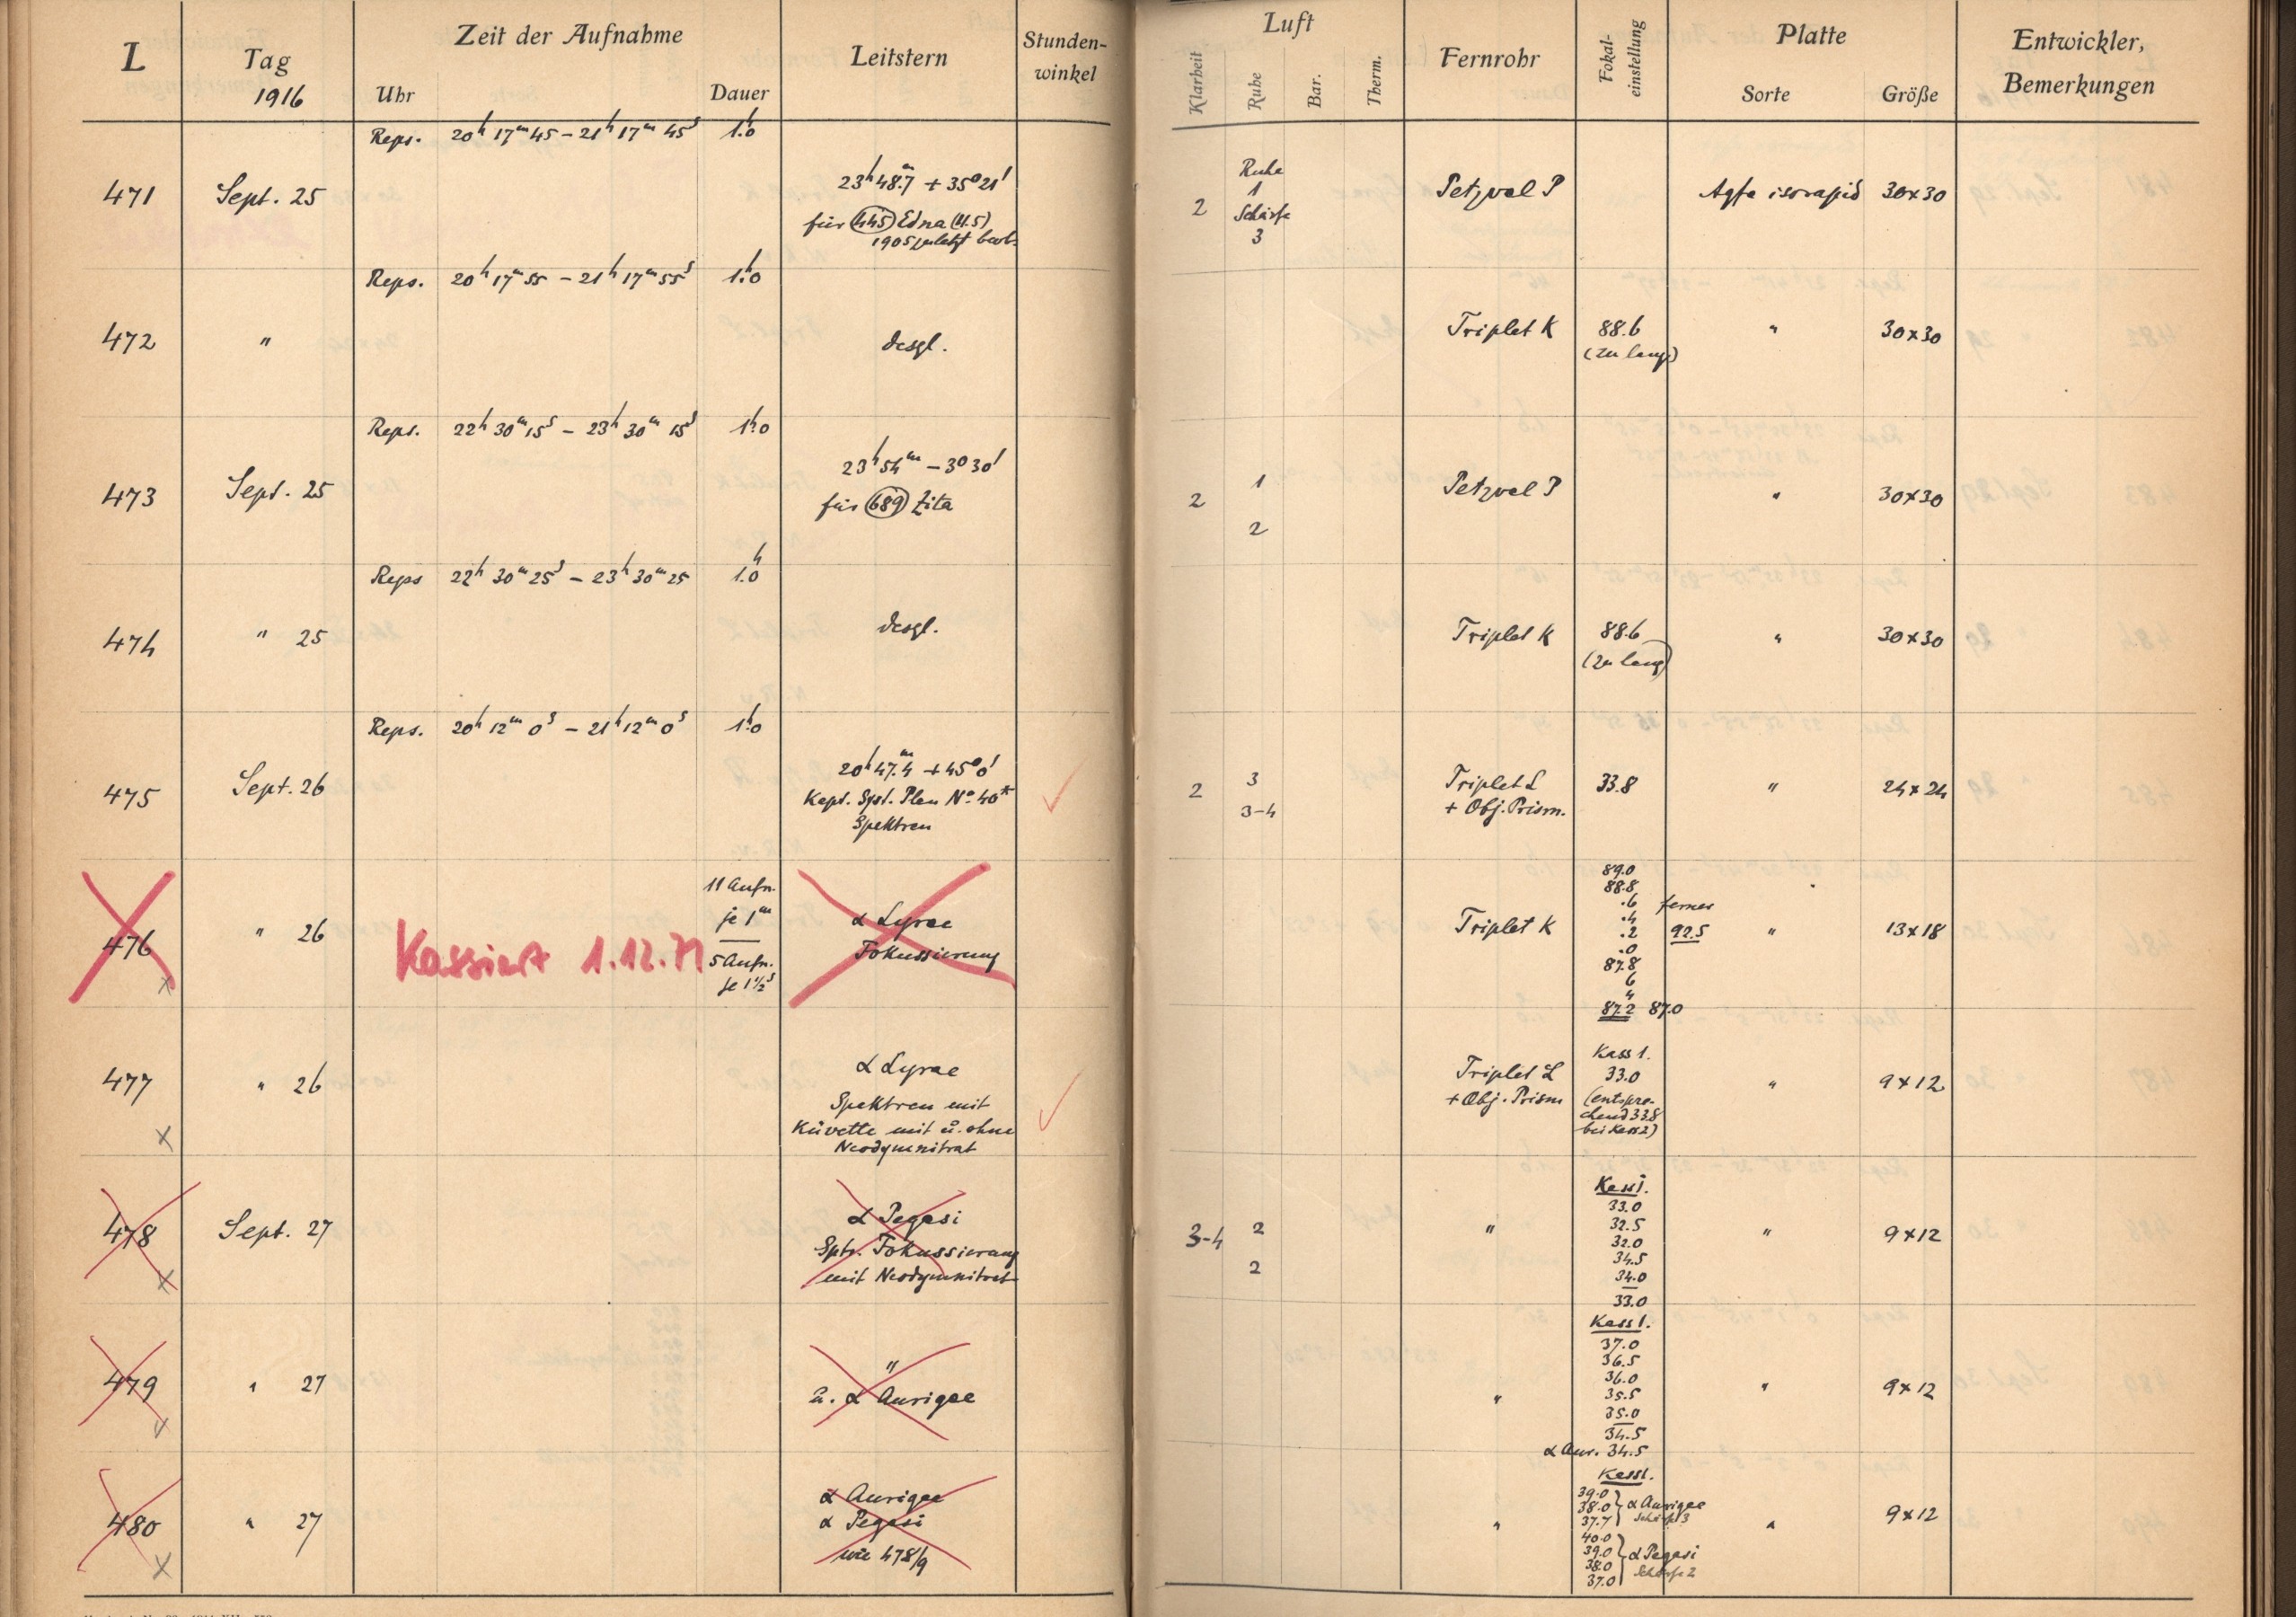 L
Tag
1916
Zeit der Aufnahme
Uhr
Dauer
Leitstern
Stunden-
winkel
Luft
Klarheit
Ruhe
Bar.
Therm.
Fernrohr
Fokal-
einstellung
Platte
Sorte
Größe
Entwickler,
Bemerkungen
471
Sept. 25
Reps. 20h 17m 45 – 21h 17m 45s
1h.0
23h 48m.7 + 35° 21'
für (445) Edna (11.5)
1905 zuletzt beob.
2
Ruhe
1
Schärfe
3
Petzval P
Agfa isorapid
30×30
472
"
Reps. 20h 17m 55 – 21h 17m 55s
1h.0
desgl.
Triplet K
88.6
(zu lang)
"
30×30
473
Sept. 25
Reps. 22h 30m 15s – 23h 30m 15s
1h.0
23h 54m – 3° 30'
für (689) Zita
2
1
2
Petzval P
"
30×30
474
" 25
Reps 22h 30m 25s – 23h 30m 25
1h.0
desgl.
Triplet K
88.6
(zu lang)
"
30×30
475
Sept. 26
Reps. 20h 12m 0s – 21h 12m 0s
1h.0
20h 47m.4 + 45° 0'
Kapt. Syst. Plan No. 40*
Spektren
2
3
3–4
Triplet L
+ Obj. Prism.
33.8
"
24×24
476
×
" 26
Kassiert 1.12.71
11 Aufn.
je 1m
5 Aufn.
je 1½s
α Lyrae
Fokussierung
Triplet K
89.0
88.8
.6 ferner
.4
.2 92.5
.0
87.8
6
4
87.2 87.0
"
13×18
477
×
" 26
α Lyrae
Spektren mit
Küvette mit u. ohne
Neodymnitrat
Triplet L
+ Obj. Prism
Kass 1.
33.0
(entspre-
chend 33.8
bei Kass 2)
"
9×12
478
×
Sept. 27
α Pegasi
Sptr. Fokussierung
mit Neodymnitrat
3–4
2
2
"
Kass 1.
33.0
32.5
32.0
34.5
34.0
33.0
"
9×12
479
" 27
"
u. α Aurigae
"
Kass 1.
37.0
36.5
36.0
35.5
35.0
34.5
α Aur. 34.5
"
9×12
480
×
" 27
α Aurigae
α Pegasi
wie 478/9
"
Kass 1.
39.0
38.0 } α Aurigae
37.7 Schärfe 3
40.0
39.0 } α Pegasi
38.0 Schärfe 2
37.0
"
9×12